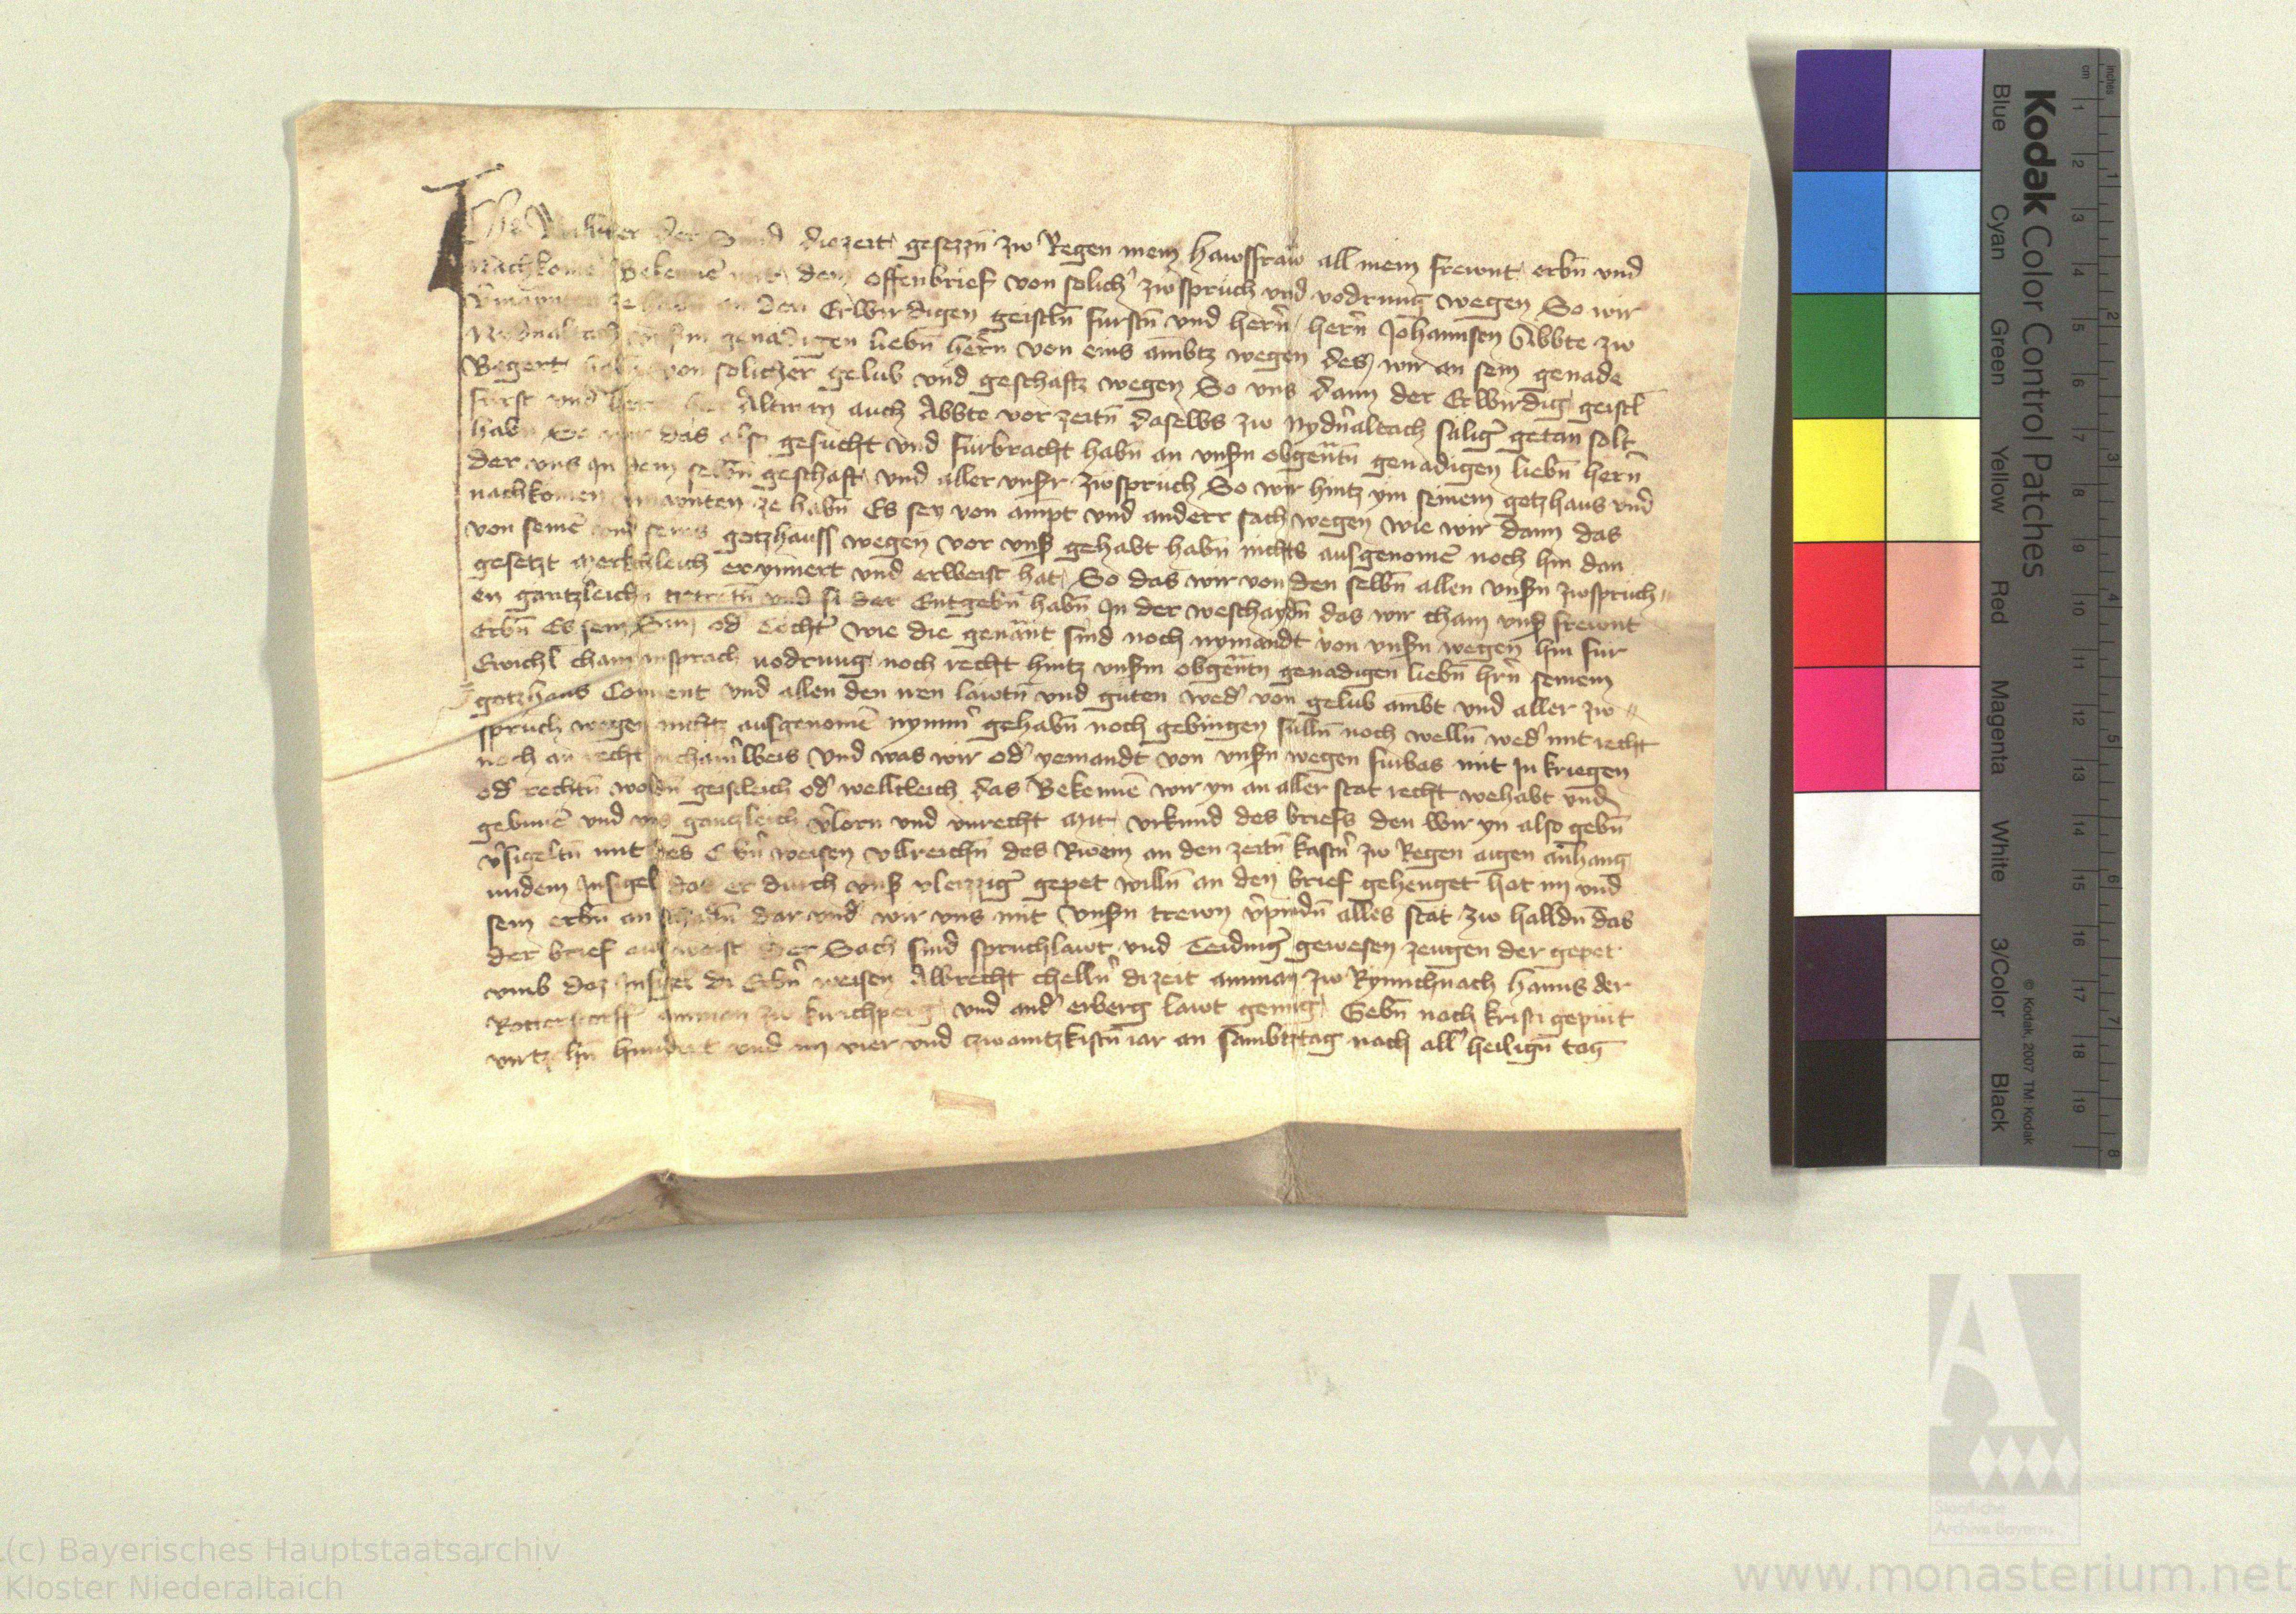 Ich der diezeit gesezzn zw Regen mein hawsfraw all mein frewnt erbn und
Nachkome Bekenne dem offenbrief von solicher zwspruch und vodrung wegen So wir
ze habn an den Erwirdigen geistln furstn und hern hern Johannsen Abbte zw
unserm genadigen liebn hern von eins ambtz wegen des wir an sein genade
Begert von solicher gelub und geschaftz wegen So uns dann der Erwirdig geistl
furst und her her Altman auch Abbte vor zeitn daselbs zw Nydernaltach salig getan solt
habn das also gesucht und furbracht habn an unsern obgentn genadigen liebn hern
der uns In dem selbn geschaft und aller unser zwspruch So wir hintz ym seinem gotzhaus und
nachkomen ze habn Es sey von ampt und anderr sach wegen wie wir dann das
von seine und seins gotzhauss wegen vor uns gehabt habn nichts ausgenome noch hin dan
gesetzt merkchleich erynnert und erweist hat So das wir von den selbn allen unsern zwspruch
en gantzleichn tretn und si der Entgebn habn In der weschaydn das wir cham uns frewnt
Erbn Es sein Sun od Tochter wie die genant sind noch nymandt von unsern wegen hin fur
Ewichl cham ansprach vodrung noch recht hintz unserm obgentn genadigen liebn hrn seinem
gotzhaus Convent und allen den iren lawtn und guten weder von gelub ambt und aller zw
spruch wegen nichtz ausgenomen nymmer gehabn noch gebingen sulln noch welln weder mit recht
noch an recht in chainer weis Und was wir oder yemandt von unsern wegen furbas mit In kriegen
oder rechtn woldn geistleich oder welltleich das Bekenne wir yn an aller stat recht wehabt und
gebunne und uns gantzleich verlorn und unrecht Mit urkund des briefs den wir yn also gebn
versigeltn mit des Erbern weisen Ullreichn des an den zeitn kastner zw Regen aigen anhang
undem Insigel daz er durch uns vleizziger gepet willn an den brief gehenget hat im und
sein erbn an schadn dar under wir uns mit unsern trewn verpindn alles stat zw halldn das
der brief ausweist Der Sach sind spruchlawt und Teidinger gewesen zeugen der gepet
umb daz Insigel di Erbern weisen Albrecht chellner dizeit amman zw Rynnichnach hanns der
amman zu kirichperg und ander erberg lawt genug Gebn nach kristi gepurt
virtz hn hundert und im vier und czwaintzkistn iar an Sambtztag nach aller heilign tag
Kodak Color Control Patches
Blue Cyan Green Yellow Red Magenta White 3/Color Black
© Kodak, 2007 TM: Kodak
inches 1 2 3 4 5 6 7 8
cm 1 2 3 4 5 6 7 8 9 10 11 12 13 14 15 16 17 18 19
Staatliche
Archive Bayerns
(c) Bayerisches Hauptstaatsarchiv
Kloster Niederaltaich
www.monasterium.net